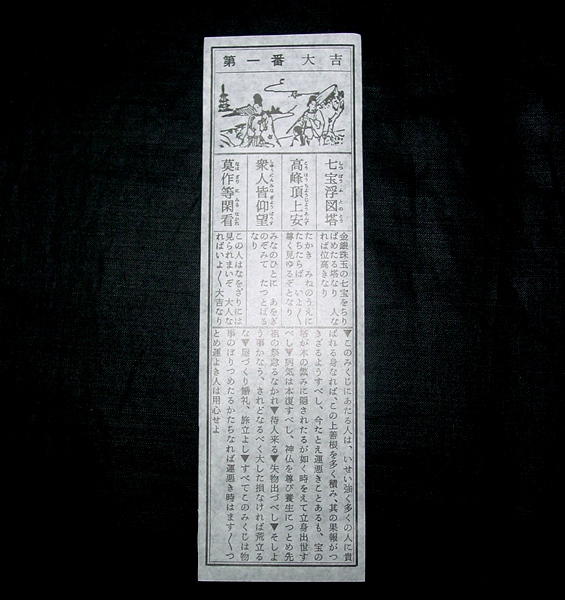 第一番 大吉
七宝浮図塔
高峰頂上安
衆人皆仰望
莫作等閑看
金銀珠玉の七宝をちり
ばめたる塔なり 人な
れば位高きなり
たかき みねのうえに
たちたらば いよ〳〵
尊く見ゆるぞとなり
みなのひとに あをぎ
のぞみて たつとばるゝ
なり
この人はなをざりには
見られまいぞ 大人な
ればいよ〳〵大吉なり
▼このみくじにあたる人は、いせい強く多くの人に貴
ばれる身なれば、この上善根を多く積み、其の果報がつ
きざるようすべし、今たとえ運悪きことあるも、宝の
塔が木の茂みに隠されたるが如く時をえて立身出世す
べし▼病気は本復すべし、神仏を尊び養生につとめ先
祖の祭怠るなかれ▼待人来る▼失物出づべし▼そしよ
う事かなう、されどなるべく大した損なければ荒立る
な▼屋づくり婚礼、旅立よし▼すべてこのみくじは物
事のぼりつめたるかたちなれば運悪き時はます〳〵つ
とめ運よき人は用心せよ